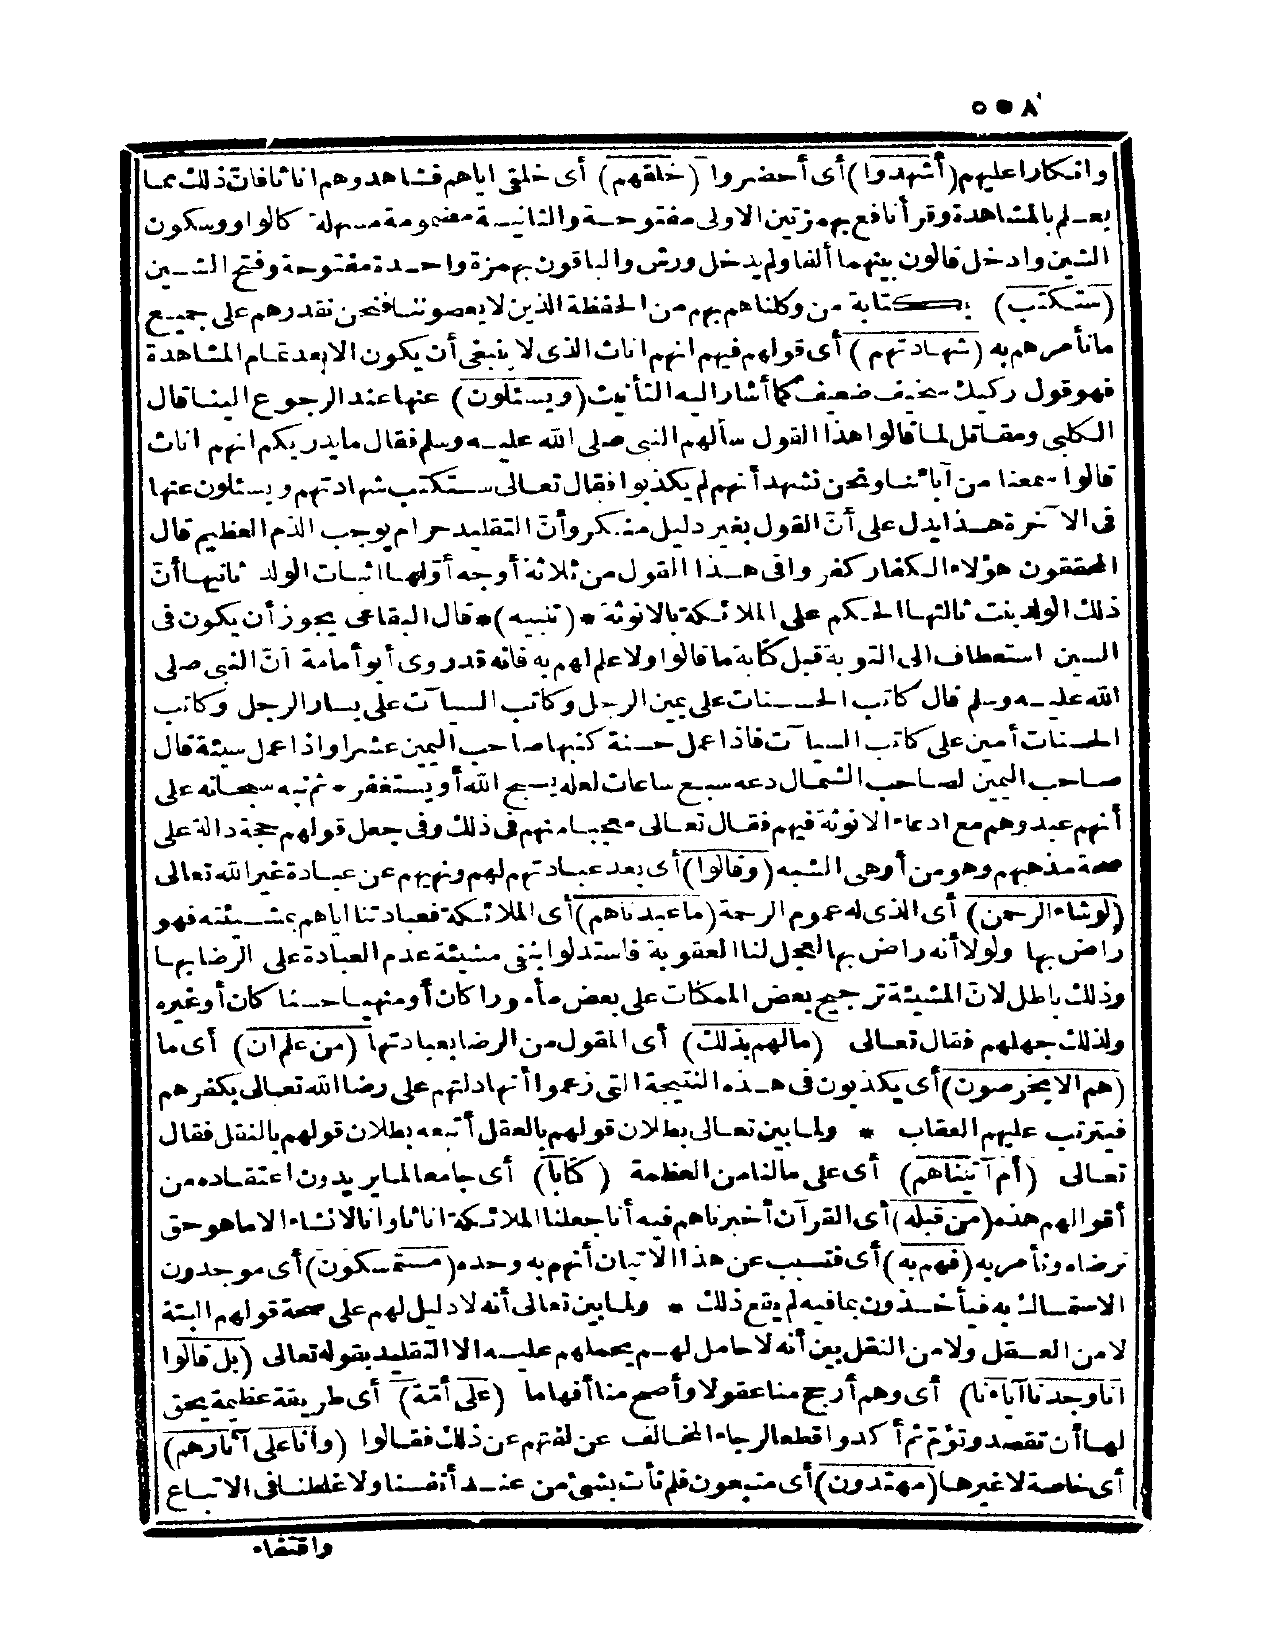 ٥٥٨
وانكارا عليهم (أشهدوا) أى أحضروا (خلقهم) أى خلقى اياهم فشاهدوهم اناثا فانّ ذلك مما
يعلم بالمشاهدة وقرأ نافع بهمزتين الاولى مفتوحة والثانية مضمومة مسهلة كالواو وسكون
الشين وادخل قالون بينهما ألفا ولم يدخل ورش والباقون بهمزة واحدة مفتوحة وفتح الشين
(ستكتب) بكتابة من وكلناهم بهم من الحفظة الذين لا يعصوننا فنحن نقدرهم على جميع
ما نأمرهم به (شهادتهم) أى قولهم فيهم انهم اناث الذى لا ينبغى أن يكون الا بعد تمام المشاهدة
فهو قول ركيك سخيف ضعيف كما أشار اليه التأنيث (ويسئلون) عنها عند الرجوع الينا قال
الكلبى ومقاتل لما قالوا هذا القول سألهم النبى صلى الله عليه وسلم فقال ما يدريكم انهم اناث
قالوا سمعنا من آبائنا ونحن نشهد أنهم لم يكذبوا فقال تعالى ستكتب شهادتهم ويسئلون عنها
فى الآخرة هذا يدل على أنّ القول بغير دليل منكر وأنّ التقليد حرام يوجب الذم العظيم قال
المحققون هؤلاء الكفار كفروا فى هذا القول من ثلاثة أوجه أوّلها اثبات الولد ثانيها أنّ
ذلك الولد بنت ثالثها الحكم على الملائكة بالانوثة * (تنبيه) * قال البقاعى يجوز أن يكون فى
السين استعطاف الى التوبة قبل كتابة ما قالوا ولا علم لهم به فانه قد روى أبو أمامة أنّ النبى صلى
الله عليه وسلم قال كاتب الحسنات على يمين الرجل وكاتب السيآت على يسار الرجل وكاتب
الحسنات أمين على كاتب السيآت فاذا عمل حسنة كتبها صاحب اليمين عشرا واذا عمل سيئة قال
صاحب اليمين لصاحب الشمال دعه سبع ساعات لعله يسبح الله أو يستغفر * ثم نبه سبحانه على
أنهم عبدوهم مع ادعاء الانوثة فيهم فقال تعالى معجبا منهم فى ذلك وفى جعل قولهم حجة دالة على
صحة مذهبهم وهو من أوهى الشبه (وقالوا) أى بعد عبادتهم لهم ونهيهم عن عبادة غير الله تعالى
(لو شاء الرحمن) أى الذى له عموم الرحمة (ما عبدناهم) أى الملائكة فعبادتنا اياهم بمشيئته فهو
راض بها ولولا أنه راض بها لعجل لنا العقوبة فاستدلوا بنفى مشيئة عدم العبادة على الرضا بها
وذلك باطل لانّ المشيئة ترجيح بعض الممكنات على بعض مأمورا كان أو منهيا حسنا كان أو غيره
ولذلك جهلهم فقال تعالى (ما لهم بذلك) أى المقول من الرضا بعبادتها (من علم ان) أى ما
(هم الا يخرصون) أى يكذبون فى هذه النتيجة التى زعموا أنها دلتهم على رضا الله تعالى بكفرهم
فيترتب عليهم العقاب * ولما بين تعالى بطلان قولهم بالعقل أتبعه بطلان قولهم بالنقل فقال
تعالى (أم آتيناهم) أى على ما لنا من العظمة (كتابا) أى جامعا لما يريدون اعتقاده من
أقوالهم هذه (من قبله) أى القرآن أخبرناهم فيه أنا جعلنا الملائكة اناثا وانا لا نشاء الا ما هو حق
نرضاه ونأمر به (فهم به) أى فتسبب عن هذا الاتيان أنهم به وحده (مستمسكون) أى موجدون
الاستمساك به فيأخذون بما فيه لم يقع ذلك * ولما بين تعالى أنه لا دليل لهم على صحة قولهم البتة
لا من العقل ولا من النقل بين أنه لا حامل لهم يحملهم عليه الا التقليد بقوله تعالى (بل قالوا
انا وجدنا آباءنا) أى وهم أرجح منا عقولا وأصح منا أفهاما (على أمّة) أى طريقة عظيمة يحق
لها أن تقصد وتؤمّ ثم أكدوا قطعا لرجاء المخالف عن لفتهم عن ذلك فقالوا (وانا على آثارهم)
أى خاصة لا غيرها (مهتدون) أى متبعون فلم نأت بشئ من عند أنفسنا ولا غلطنا فى الاتباع
واقتفاء